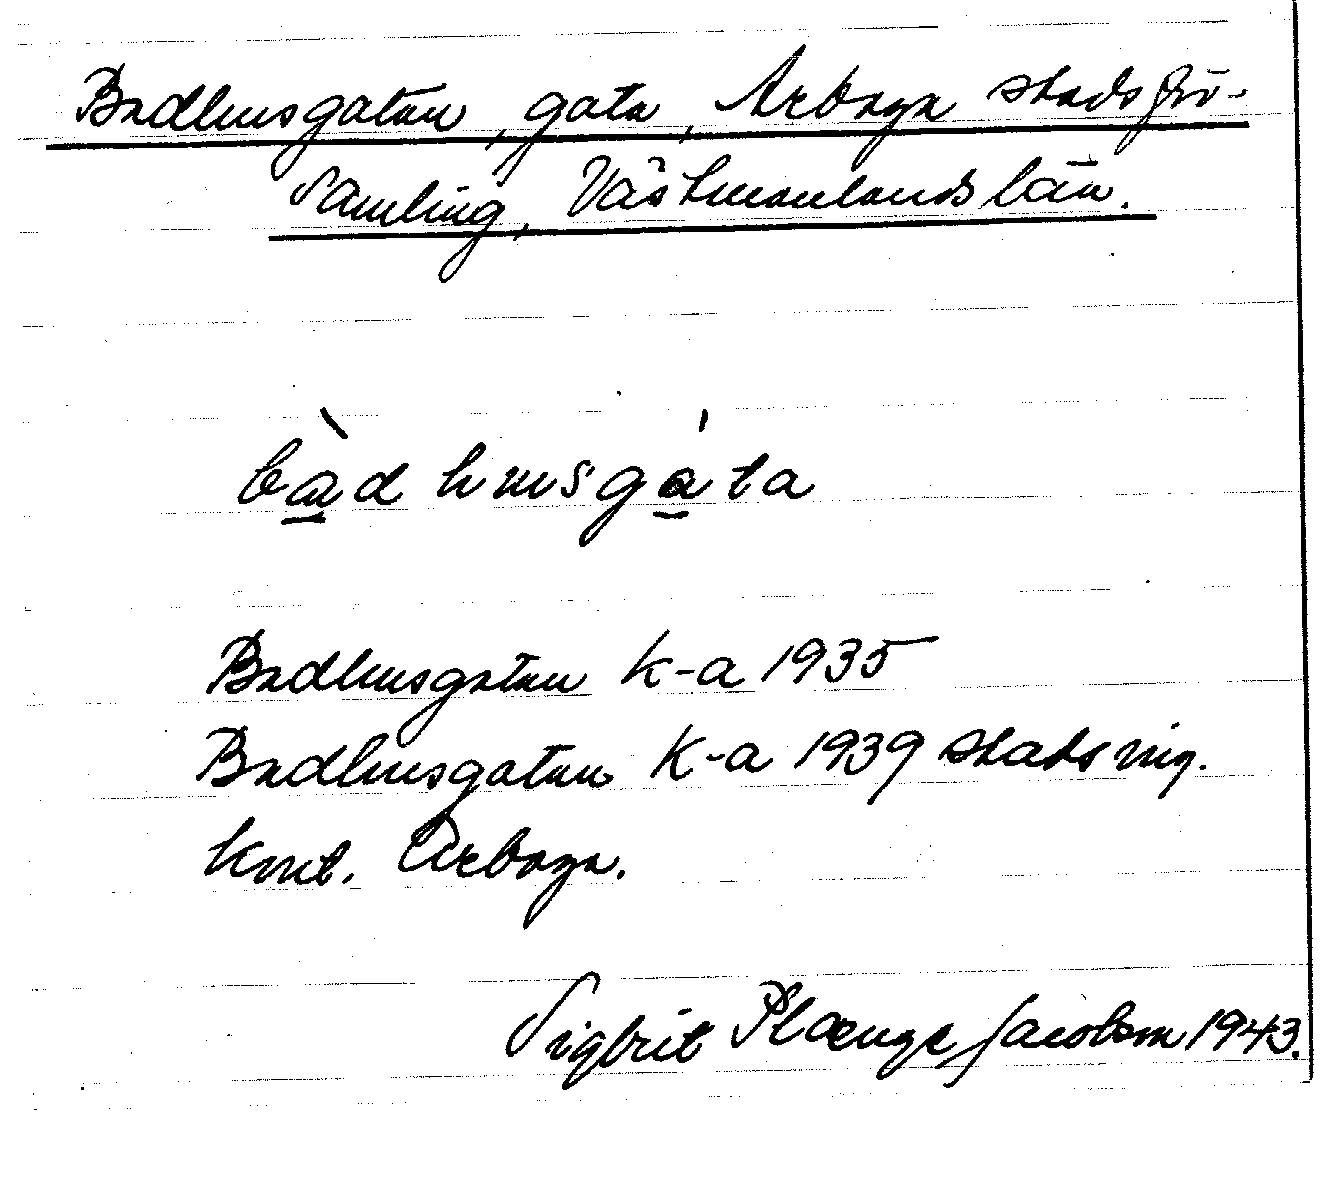 Badhusgatan, gata, Arboga stadsför-
samling, Västmanlands län.
bàdhusgáta
Badhusgatan K-a 1935
Badhusgatan K-a 1939 stadsing.
kont. Arboga.
Sigbrit Plænge Jacobson 1943.